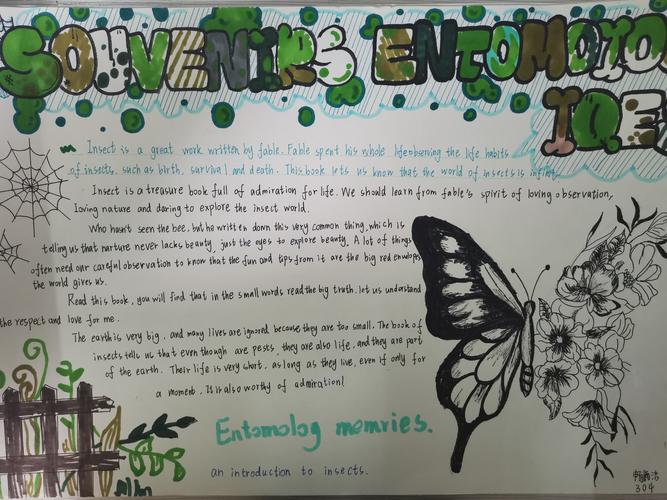 SOUVENIRS ENTOMOLO
IQE
Insect is a great work written by fable. Fable spent his whole life observing the life habits
of insects, such as birth, survival and death. This book lets us know that the world of insects is
Insect is a treasure book full of admiration for life. We should learn from fable's spirit of loving observation,
loving nature and daring to explore the insect world.
Who hasn't seen the bee. but he written down this very common thing, which is
telling us that narture never lacks beauty, just the eyes to explore beauty. A lot of things
often need our careful observation to know that the fun and tips from it are the big red envelopes
the world gives us.
Read this book, you will find that in the small words read the big truth. let us understand
the respect and love for me.
The earth is very big, and many lives are ignored because they are too small. The book of
insects tells us that even though are pests, they are also life, and they are part
of the earth. Their life is very short, as long as they live, even if only for
a moment, It is also worthy of admiration!
Entomolog memries.
an introduction to insects.
304